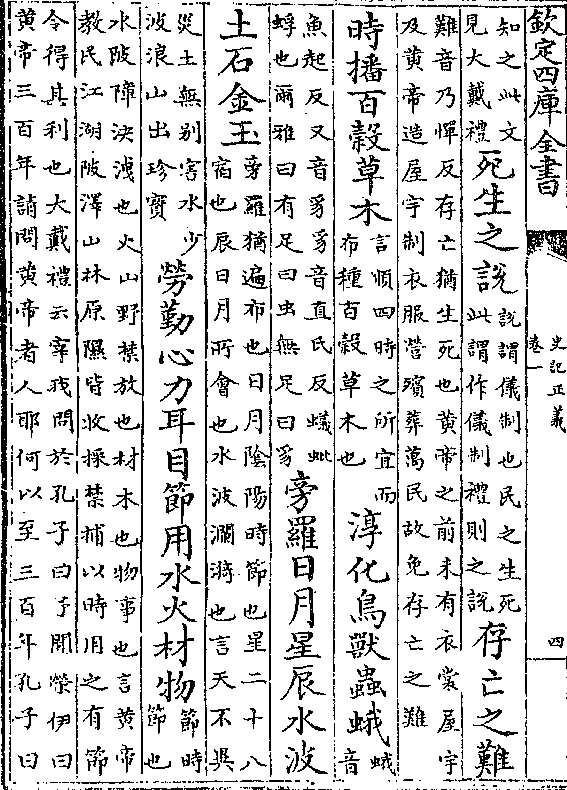 欽定四庫全書
史記正義
卷一
四
知之此文
見大戴禮
死生之説
説謂儀制也民之生死
此謂作儀制禮則之説
存亡之難
難音乃憚反存亡猶生死也黄帝之前未有衣裳屋宇
及黄帝造屋宇制衣服營殯葬萬民故免存亡之難
時播百穀草木
言順四時之所宜而
布種百穀草木也
淳化鳥獸蟲蛾
蛾
音
魚起反又音豸豸音直氏反蟻蚍
蜉也爾雅曰有足曰虫無足曰豸
旁羅日月星辰水波
土石金玉
旁羅猶遍布也日月陰陽時節也星二十八
宿也辰日月所會也水波瀾漪也言天不異
災土無别害水少
波浪山出珍寶
勞勤心力耳目節用水火材物
節時
節也
水陂障決洩也火山野禁放也材木也物事也言黄帝
教民江湖陂澤山林原隰皆收採禁捕以時用之有節
令得其利也大戴禮云宰我問於孔子曰予聞榮伊曰
黄帝三百年請問黄帝者人耶何以至三百年孔子曰